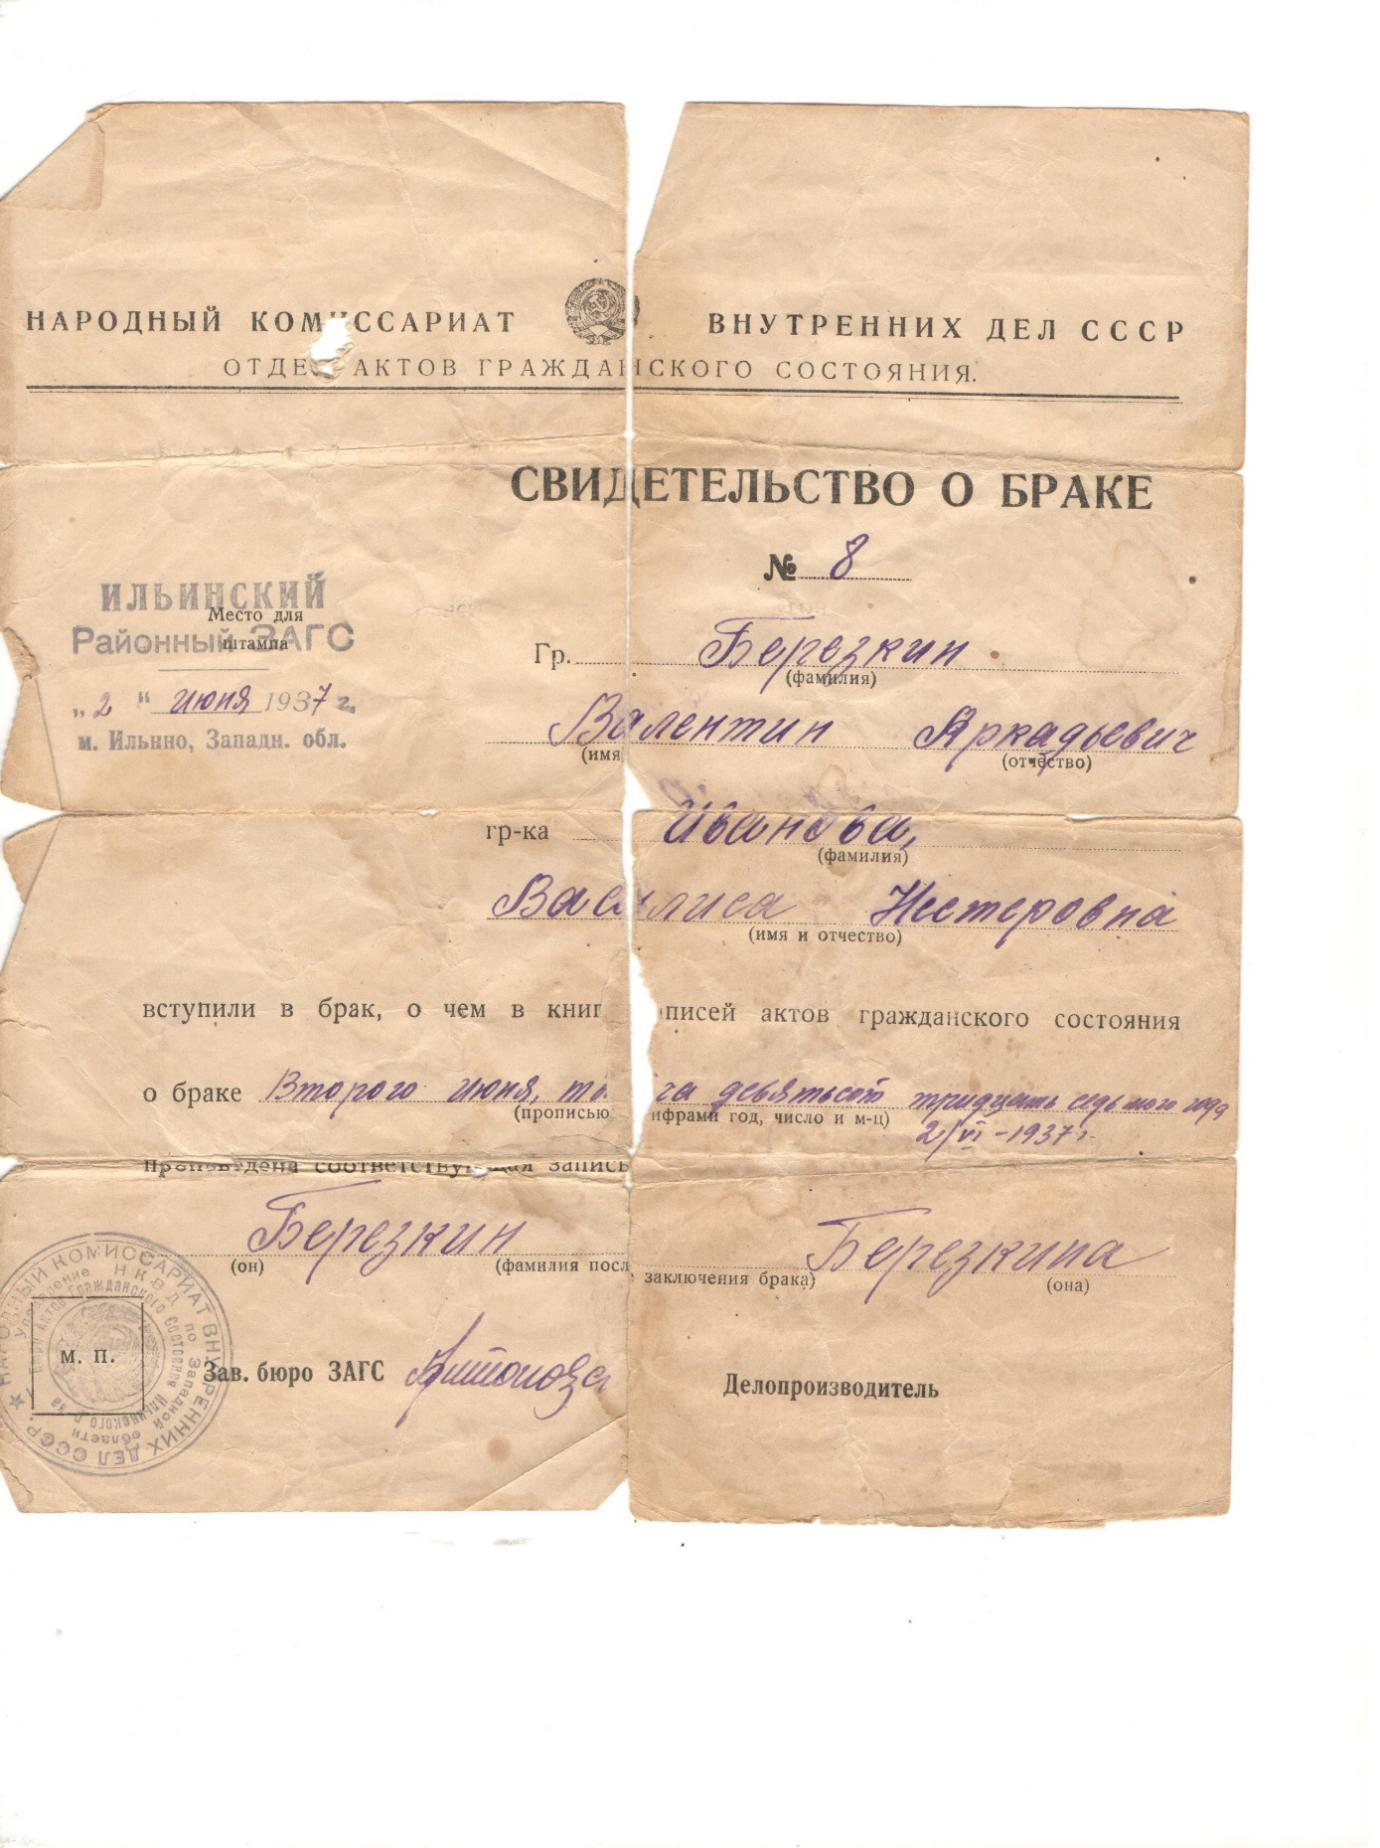 НАРОДНЫЙ КОМИССАРИАТ ВНУТРЕННИХ ДЕЛ СССР
ОТДЕЛ АКТОВ ГРАЖДАНСКОГО СОСТОЯНИЯ.
СВИДЕТЕЛЬСТВО О БРАКЕ
№ 8
ИЛЬИНСКИЙ
Место для
Районный ЗАГС
штампа
„2“ июня 1937 г.
м. Ильино, Западн. обл.
Гр. Березкин
(фамилия)
Валентин Аркадьевич
(имя) (отчество)
гр-ка Иванова,
(фамилия)
Василиса Нестеровна
(имя и отчество)
вступили в брак, о чем в книг писей актов гражданского состояния
о браке Второго июня, ты ча девятьсот тридцать седьмого года
(прописью ифрами год, число и м-ц) 2/VI-1937 г.
Произведена соответствующая запись
Березкин Березкина
(он) (фамилия посл заключения брака) (она)
НАРОДНЫЙ КОМИССАРИАТ ВНУТРЕННИХ ДЕЛ СССР
Управление НКВД по Западной области
Актов Гражданского Состояния Ильинского р-на
М. П.
Зав. бюро ЗАГС Антонова
Делопроизводитель